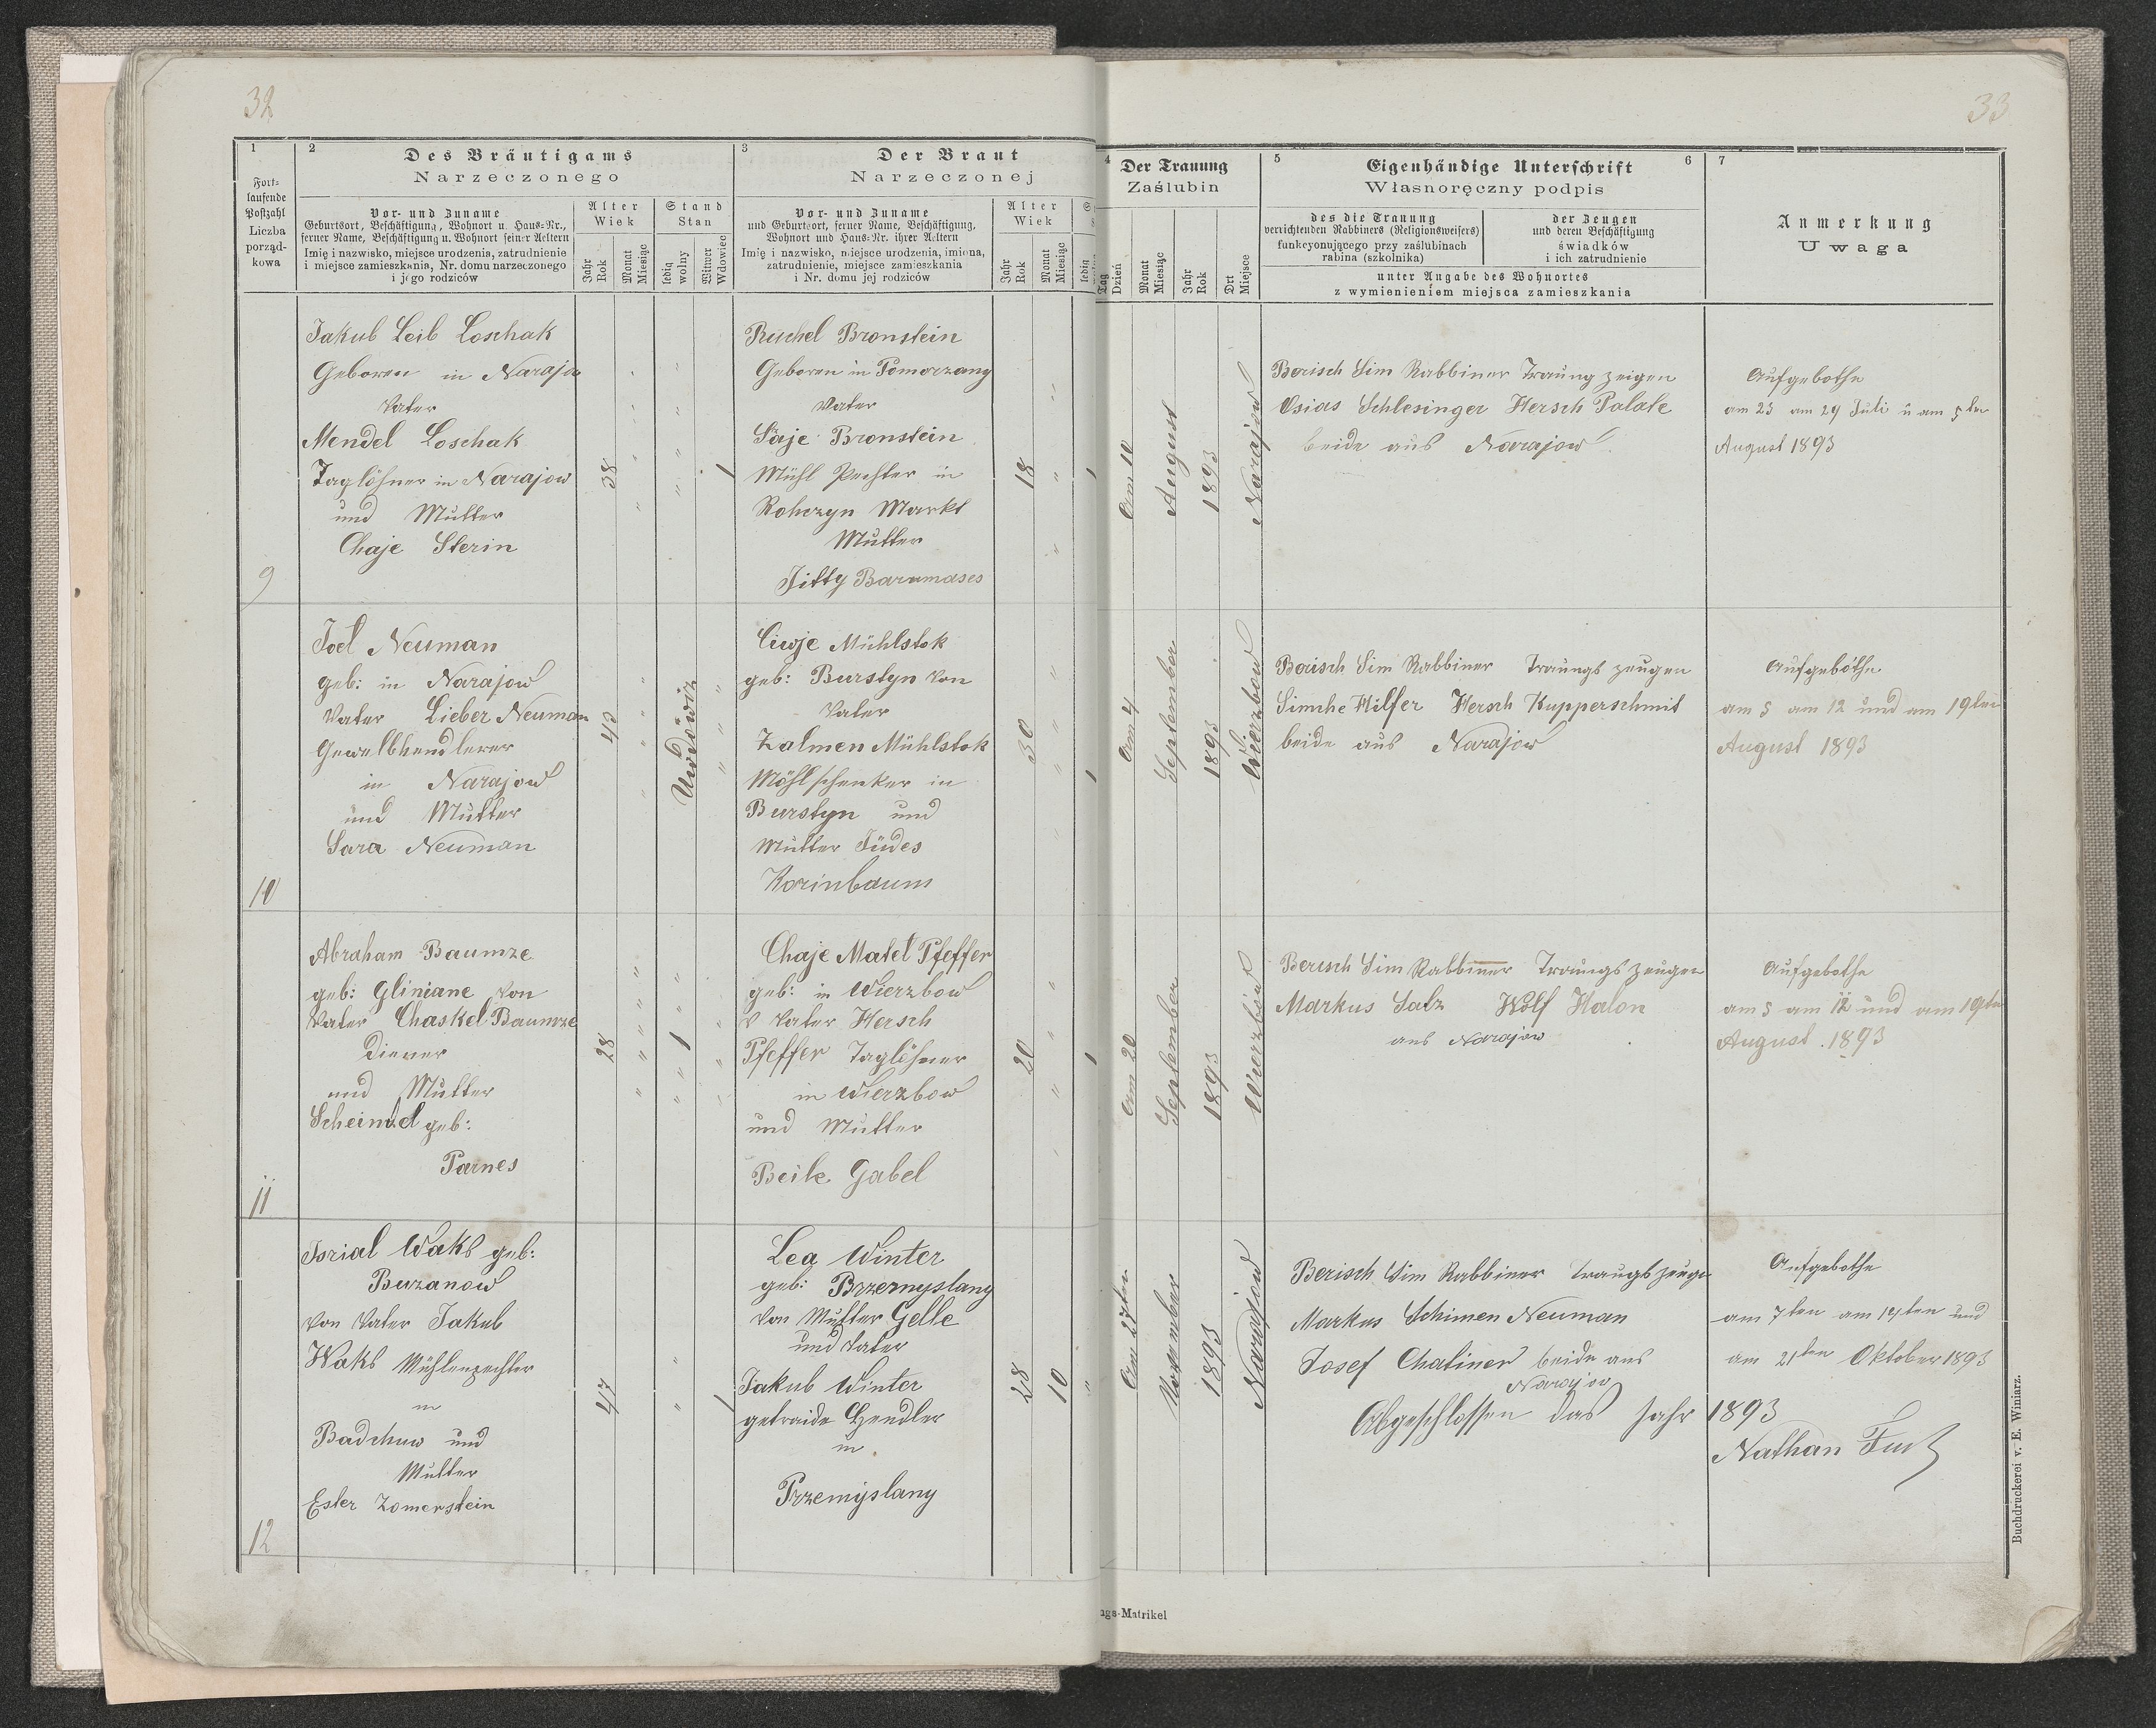 32
33
1
2
Des Bräutigams
Narzeczonego
3
Der Braut
Narzeczonej
4
Der Trauung
Zaślubin
5
Eigenhändige Unterschrift
6
Własnoręczny podpis
7
Anmerkung
Uwaga
Fort-
laufende
Postzahl
Liczba
porząd-
kowa
Vor- und Zuname
Geburtsort, Beschäftigung, Wohnort u. Haus-Nr.,
ferner Name, Beschäftigung u. Wohnort seiner Aeltern
Imię i nazwisko, miejsce urodzenia, zatrudnienie
i miejsce zamieszkania, Nr. domu narzeczonego
i jego rodziców
Alter
Wiek
Jahr
Rok
Monat
Miesiąc
Stand
Stan
ledig
wolny
Witwer
Wdowiec
Vor- und Zuname
und Geburtsort, ferner Name, Beschäftigung,
Wohnort und Haus-Nr. ihrer Aeltern
Imię i nazwisko, miejsce urodzenia, imiona,
zatrudnienie, miejsce zamieszkania
i Nr. domu jej rodziców
Alter
Wiek
Jahr
Rok
Monat
Miesiąc
ledig
Tag
Dzień
Monat
Miesiąc
Jahr
Rok
Ort
Miejsce
des die Trauung
verrichtenden Rabbiners (Religionsweisers)
funkcyonującego przy zaślubinach
rabina (szkolnika)
der Zeugen
und deren Beschäftigung
świadków
i ich zatrudnienie
unter Angabe des Wohnortes
z wymienieniem miejsca zamieszkania
9
Jakub Leib Loschak
Geboren in Narajow
Vater
Mendel Loschak
Taglöhner in Narajow
und Mutter
Chaje Sterin
38
1
Ruchel Bronstein
Geboren in Pomorzany
Vater
Saje Bronstein
Mühl Pechter in
Rohczyn Markt
Mutter
Jitty Barumases
18
1
Am 10
August
1893
Narajow
Berisch Sim Rabbiner Traung zeigen
Osias Schlesinger Hersch Palate
beide aus Narajow
Aufgebothe
am 23 am 29 Juli u am 5ten
August 1893
10
Joel Neuman
geb: in Narajow
Vater Lieber Neuman
Gewelbhendlerer
in Narajow
und Mutter
Sara Neuman
43
Ciwje Mühlstok
geb: Burstyn von
Vater
Zalmen Mühlstok
Möhlschenker in
Burstyn und
Mutter Judes
Korinbaum
30
1
Am 4
September
1893
Wierzbow
Berisch Sim Rabbiner Traungs zeugen
Simche Hilfer Hersch Kupperschmit
beide aus Narajow
Aufgebothe
am 5 am 12 und am 19ten
August 1893
11
Abraham Baumze
geb: Gliniane von
Vater Chaskel Baumze
Diener
und Mutter
Scheindel geb:
Parnes
28
1
Chaje Matel Pfeffer
geb: in Wierzbow
v Vater Hersch
Pfeffer Taglöhner
in Wierzbow
und Mutter
Beile Gabel
20
1
Am 20
September
1893
Wierzbow
Berisch Sim Rabbiner Traungs zeugen
Markus Salz Wolf Halon
aus Narajow
Aufgebothe
am 5 am 12 und am 19ten
August 1893
12
Isrial Waks geb:
Buzanow
von Vater Jakub
Waks Mühlenpechter
in
Badchuw und
Mutter
Ester Zomerstein
47
1
Lea Winter
geb: Przemyslany
von Mutter Gelle
und Vater
Jakub Winter
getraide Hendler
in
Przemyslany
28
10
Am 27ten
November
1893
Narajow
Berisch Sim Rabbiner Traugs zeuge
Markus Schimen Neuman
Josef Chatiner beide aus
Narajow
Aufgebothe
am 7ten am 14ten und
am 21ten Oktober 1893
Abgeschlossen das Jahr 1893
Nathan
ngs-Matrikel
Buchdruckerei v. E. Winiarz.